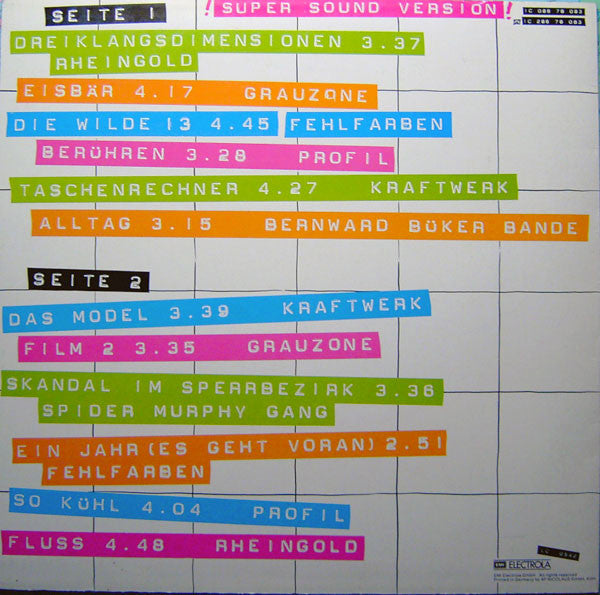 SEITE 1
! SUPER SOUND VERSION !
1C 088 78 083
1C 288 78 083
DREIKLANGSDIMENSIONEN 3.37
RHEINGOLD
EISBÄR 4.17 GRAUZONE
DIE WILDE 13 4.45 FEHLFARBEN
BERÜHREN 3.28 PROFIL
TASCHENRECHNER 4.27 KRAFTWERK
ALLTAG 3.15 BERNWARD BÜKER BANDE
SEITE 2
DAS MODEL 3.39 KRAFTWERK
FILM 2 3.35 GRAUZONE
SKANDAL IM SPERRBEZIRK 3.36
SPIDER MURPHY GANG
EIN JAHR (ES GEHT VORAN) 2.51
FEHLFARBEN
SO KÜHL 4.04 PROFIL
FLUSS 4.48 RHEINGOLD
LC 0542
EMI ELECTROLA
EMI Electrola GmbH All rights reserved
Printed in Germany by